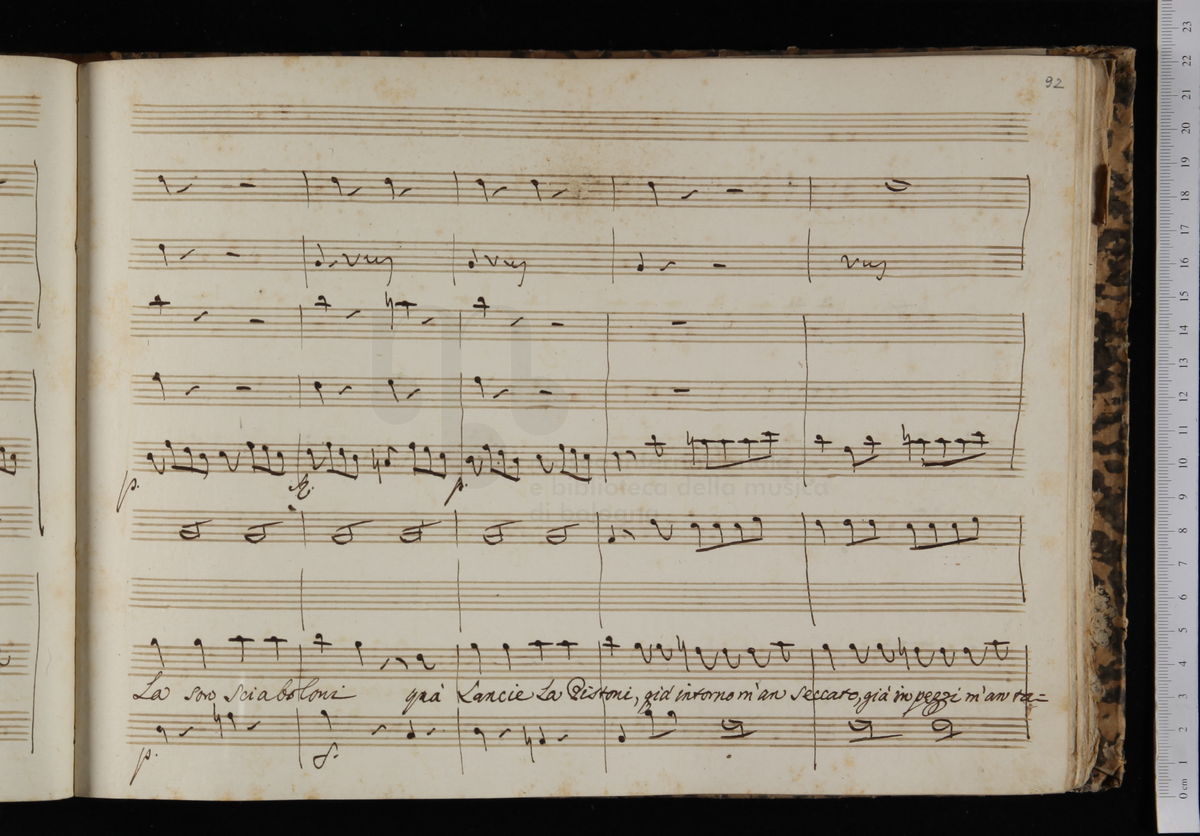 92
p.
p.
e biblioteca della musica
di bologna
La son sciaboloni quà Lancie La Pistoni, già intorno m'an seccato, già in pezzi m'an ta=
p.
f.
0 cm 1 2 3 4 5 6 7 8 9 10 11 12 13 14 15 16 17 18 19 20 21 22 23